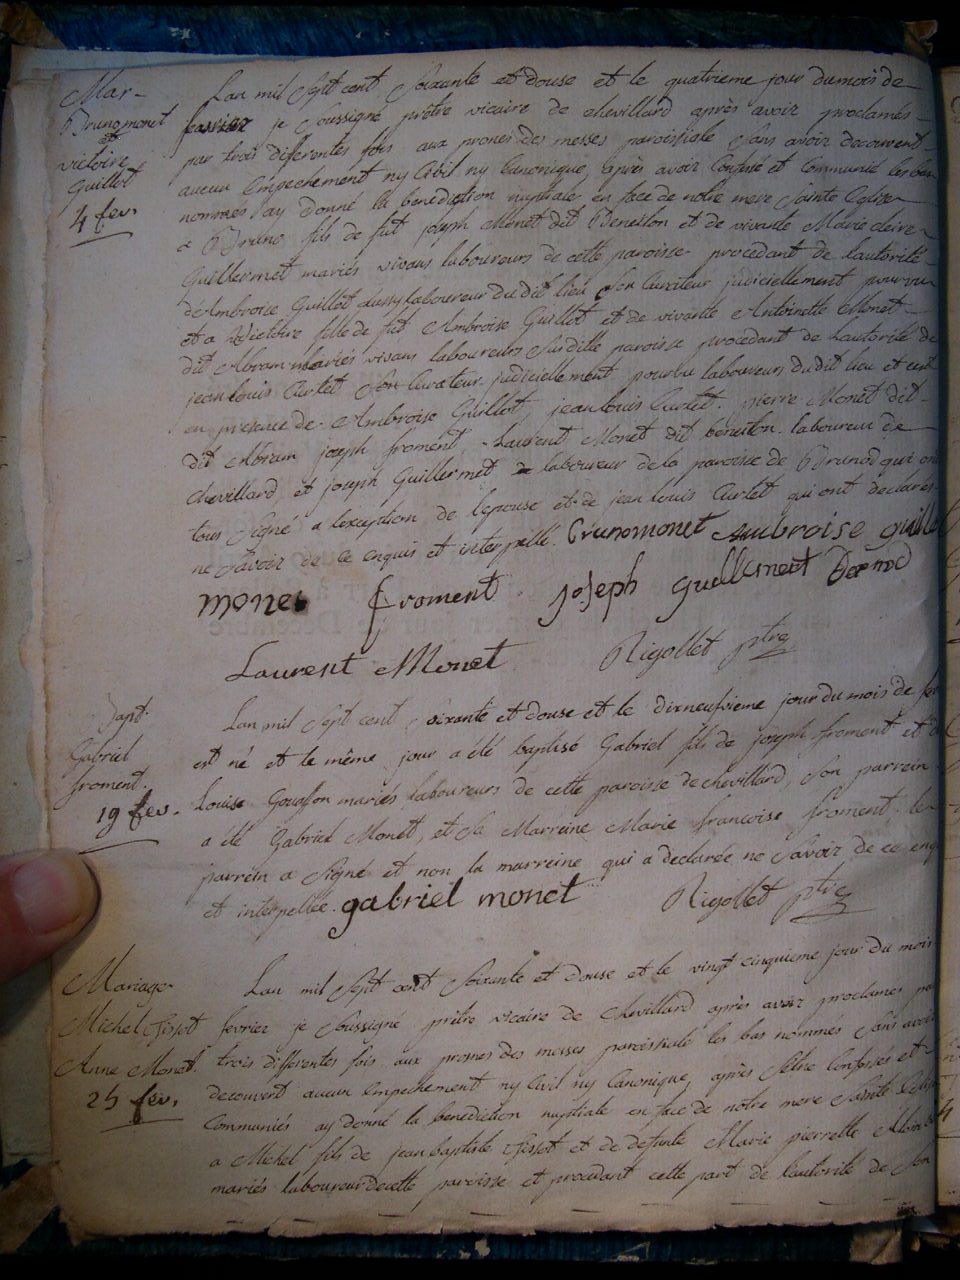 Mar-
Bruno monet
et
victoire
Guillot
4 fev.
Lan mil Sept cent Soixante et douse et le quatrieme jour du mois de
fevrier je Soussigné prêtre vicaire de chevillard après avoir proclamés
par trois differentes fois aux prones des messes paroissiale Sans avoir decouvert
aucun Empechement ny Civil ny Canonique, après avoir Confessé et Communié les bas
nommés ay donné la benediction nuptiale en face de notre mere Sainte Eglise
a Bruno fils de fut joseph Monet dit Beneiton et de vivante Marie claire
Guillermet mariés vivans laboureurs de cette paroisse procedant de l'autorité
d'Ambroise Guillot aussy laboureur du dit lieu Son Curateur judiciellement pourvu
et a Victoire fille de fut Ambroise Guillot et de vivante Antoinette Monet
dit Abram mariés vivans laboureurs Susditte paroisse procedant de l'autorité de
jean louis Curtet Son Curateur judiciellement pourvu laboureurs du dit lieu et ce
en presence de Ambroise Guillot, jean louis Curtet. pierre Monet dit
dit Abram joseph froment Laurent Monet dit beneiton laboureur de
chevillard et joseph Guillermet laboureur de la paroisse de Brenod qui on
tous Signé a l'exception de l'epouse et de jean louis Curtet qui ont declarés
ne Savoir de ce enquis et interpellé. Brunomonet Ambroise guille
monet froment joseph guellermet
Laurent Monet Rigollet ptre
Bapt.
Gabriel
froment.
19 fev.
Lan mil Sept cent Soixante et douse et le dixneufvieme jour du mois de fev
est né et le même jour a été baptisé Gabriel fils de joseph froment et d
Louise Goujon mariés laboureurs de cette paroisse de chevillard, Son parrein
a été Gabriel Monet, et Sa Marreine Marie francoise froment le
parrein a Signé et non la marreine qui a declarée ne Savoir de ce enq
et interpellée. gabriel monet Rigollet ptre
Mariage
Michel Tissot
Anne Monet.
25 fev.
Lan mil Sept cent Soixante et douse et le vingt cinquieme jour du mois
fevrier je Soussigné prêtre vicaire de Chevillard après avoir proclamés pa
trois differentes fois aux prones des messes paroissiale les bas nommés Sans avoir
decouvert aucun Empechement ny Civil ny Canonique, après S'être Confessés et
Communiés ay donné la benediction nuptiale en face de notre mere Sainte Eglise
a Michel fils de jean baptiste Tissot et de defunte Marie pierrette
mariés laboureur de cette paroisse et procedant cette part de l'autorité de Son